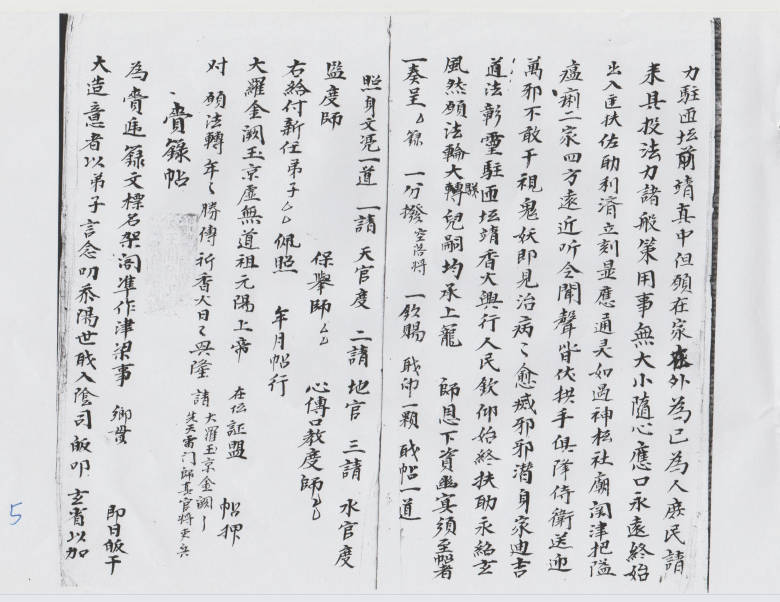 力駐匝坛前靖真中但願在家在外為已為人庶民請
来具投法力諸般策用事無大小隨心應口永遠終始
出入匡扶佐助利濟立刻显應通灵如過神坛社廟関津把隘
瘟痢二家四方遠近听令聞聲皆伏拱手俱降侍衛送迎
萬邪不敢干視鬼妖即見治病々愈滅邪邪潜身家迪吉
道法彰靈駐匝坛靖香火興行人民欽仰始終扶助永紹玄
風然願法輪大轉兒嗣均承上寵 師恩下資幽冥須至帖者
一奏呈么籙 一分撥 一欽賜 戝印一顆 戝帖一道
照身文憑一道 一請 天官度 二請 地官 三請 水官度
監度師 保舉師么么 心傳口教度師么么
右給付新任弟子么么 佩照 年月帖行
大羅金闕玉京虛無道祖元陽上帝 在位証盟 帖押
对 願法轉年々勝傳祈香火日々興隆 請 大羅玉京金闕 先天雷门師真官将吏兵
賫籙帖
為賫進籙文標名架阁准作津梁事 鄉貫 即日皈干
大造意者以弟子言念叨忝陽世戝入陰司皈叩玄省以加
5